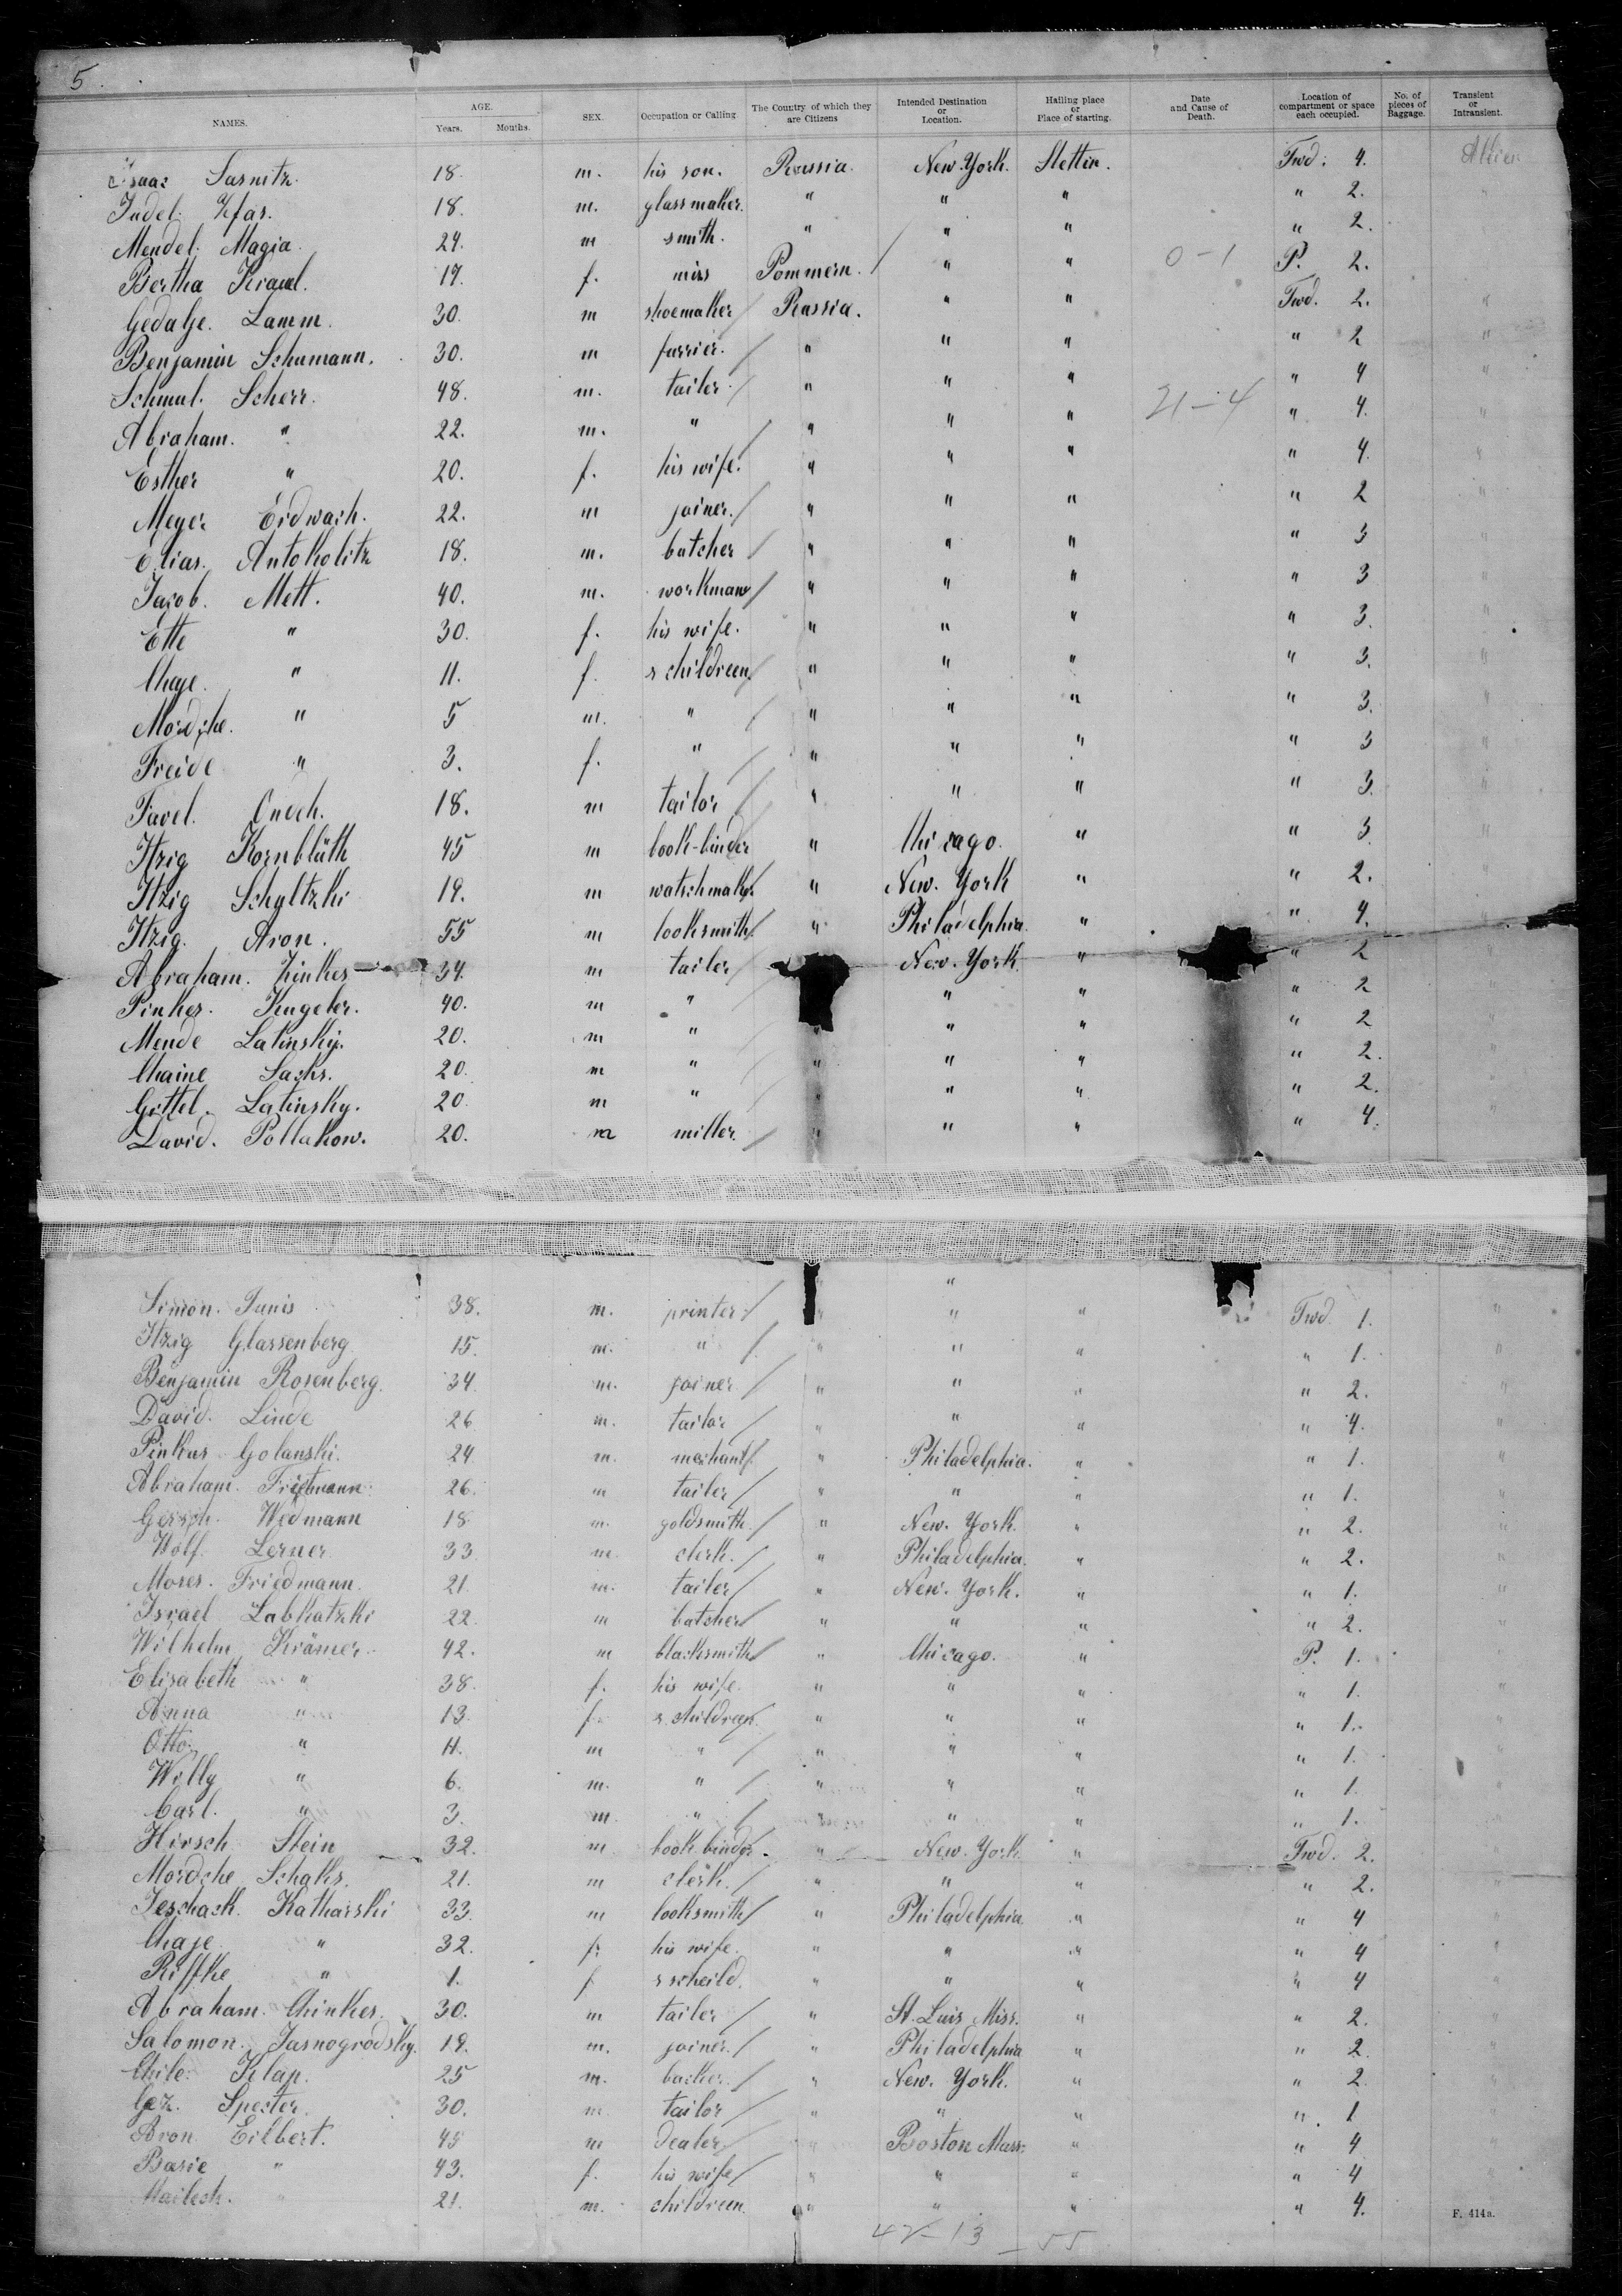 5.
NAMES. AGE. Years. Months. SEX. Occupation or Calling. The Country of which they are Citizens Intended Destination or Location. Hailing place or Place of starting. Date and Cause of Death. Location of compartment or space each occupied. No. of pieces of Baggage. Transient or Intransient.
Isaac Sasnitz 18. m. his son. Russia. New York. Stettin. Twd. 4.
Judel. 18. m. glassmaker. " " " " 2.
Mendel. Magia. 24. m smith. " " " " 2.
Bertha 19. f. miss Pommern. " " 0-1 P. 2.
Gedalje. Lamm. 30. m shoemaker Russia. " " Twd. 2. "
Benjamin Schumann. 30. m furrier. " " " " 2 "
Schmul. Scherr. 48. m. tailer. " " " " 4 "
Abraham. " 22. m. " " " " 21-4 " 4. "
Esther " 20. f. his wife. " " " " 4. "
Meyer Erdwach. 22. m joiner. " " " " 2 "
Elias. Antokolitz 18. m. batcher " " " " 3 "
Jacob. Mett. 40. m. workman " " " " 3 "
Ette " 30. f. his wife. " " " " 3. "
Chaje. " 11. f. s children. " " " " 3. "
Mordche. " 5 m. " " " " " 3. "
Freide " 3. f. " " " " " 3 "
Favel. 18. m tailor " " " " 3. "
Itzig Kornblüth 45 m book-binder " Chicago. " " 3 "
Itzig Schyltzki 19. m watschmaker " New. York " " 2. "
Itzig. Aron. 55 m looksmith. " Philadelphia. " " 4. "
Abraham. Zinkes 34. m tailer New. York. " " 2 "
Pinkes. Kugeler. 40. m " " " " 2 "
Mende Latinsky. 20. m " " " " " 2 "
Chaine Sachs. 20. m " " " " " 2. "
Gittel. Latinsky. 20 m " " " " " 2. "
David. Pollakow. 20. m miller. " " " " 4. "
"
Simon. Tunis 38. m. printer. " " " Twd. 1. "
Itzig Glassenberg. 15. m. " " " " " 1. "
Benjamin Rosenberg. 34. m. joiner " " " " 2. "
David. Linde 26 m. tailor " " " " 4. "
Pinkus Golanski. 24. m. mechant. " Philadelphia. " " 1. "
Abraham. 26. m tailer " " " " 1. "
Gersch. Wedmann 18 m. goldsmith. " New. York. " " 2. "
Wolf. Lerner 33 m. clerk. " Philadelphia. " " 2. "
Moses. Friedmann. 21. m. tailer " New. York. " " 1. "
Israel Labkatzki 22. m batcher " " " " 2. "
Wilhelm Krämer 42. m blacksmith " Chicago. " P. 1. "
Elisabeth " 38. f. his wife. " " " " 1. "
Anna " 13. f. s. children. " " " " 1. "
Otto. " 11. m " " " " " 1. "
Willy " 6. m. " " " " " 1. "
Carl. " 3. m. " " " " " 1. "
Hirsch Stein 32. m. book binder. " New. York " Twd. 2. "
Mordche Schaks. 21. m clerk. " " " " 2. "
Jeschack. Katharski 33. m looksmith " Philadelphia. " " 4 "
Chaje " 32. f. his wife. " " " " 4 "
Riffke " 1. f s cheild. " " " " 4 "
Abraham. Chinkes. 30. m tailer " St. Luis Miss. " " 2. "
Salomon. Jasnogrodsky. 19. m. joiner. " Philadelphia " " 2. "
Chile Klap. 25 m. backer. " New. York. " " 2 "
Spector. 30. m tailor " " " " 1 "
Aron. Eilbert. 45 m dealer. " Boston Mass. " " 4 "
Basie " 43. f. his wife " " " " 4 "
Mailech. " 21. m. children. " " " " 4.
42-13 - 55
F. 414a.